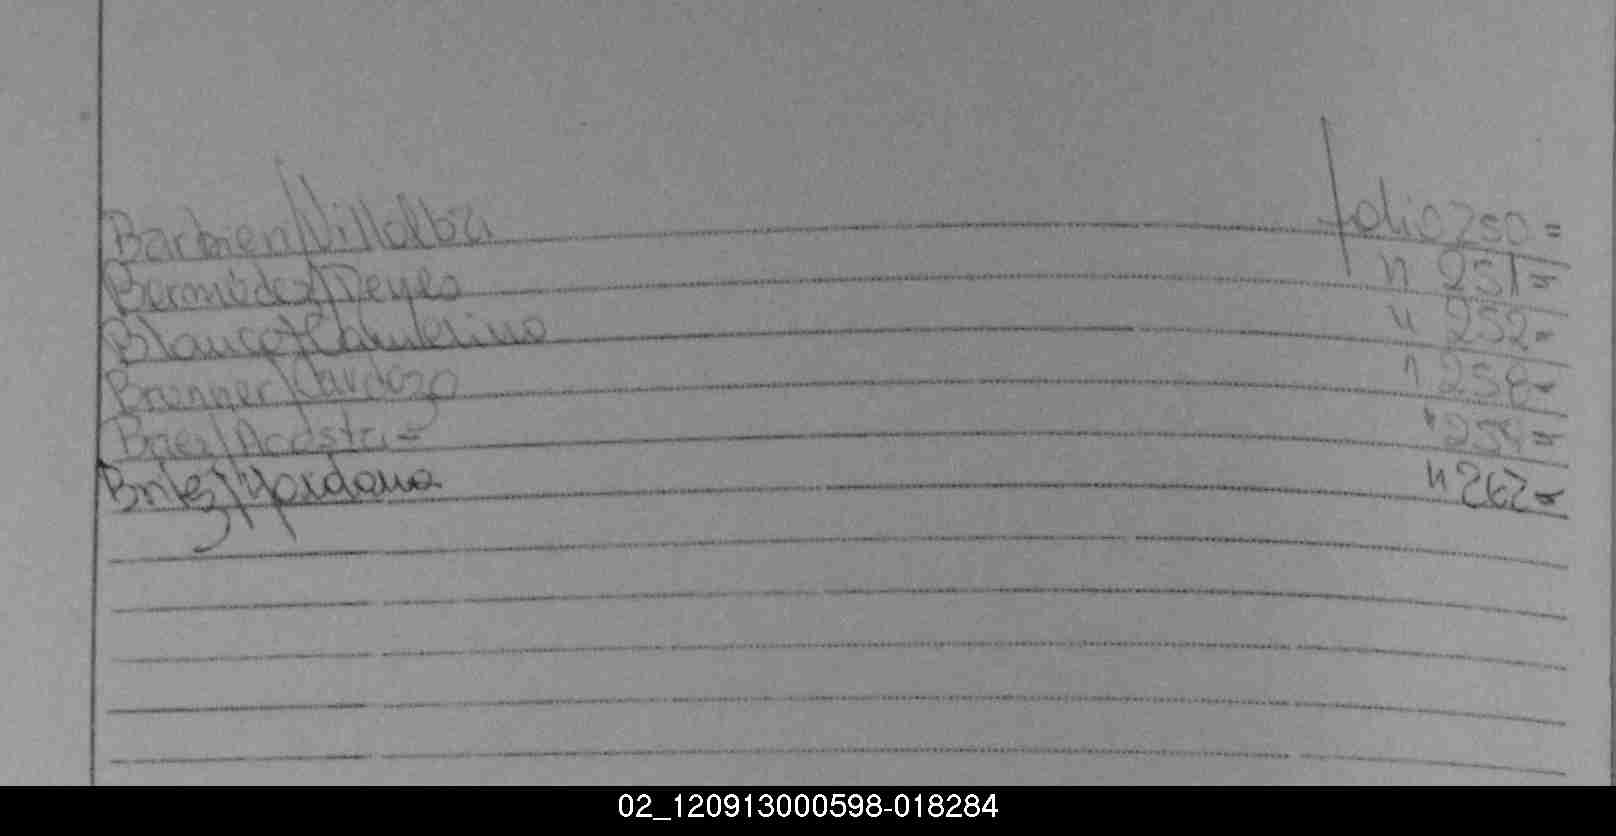 Barbieri/Villalba folio 250=
Bermúdez/Reyes " 251=
Blanco/Cabulrino " 252=
Brunner/Cardozo " 258=
Baez/Acosta= " 259=
Britez/Yordana " 262=
02_120913000598-018284